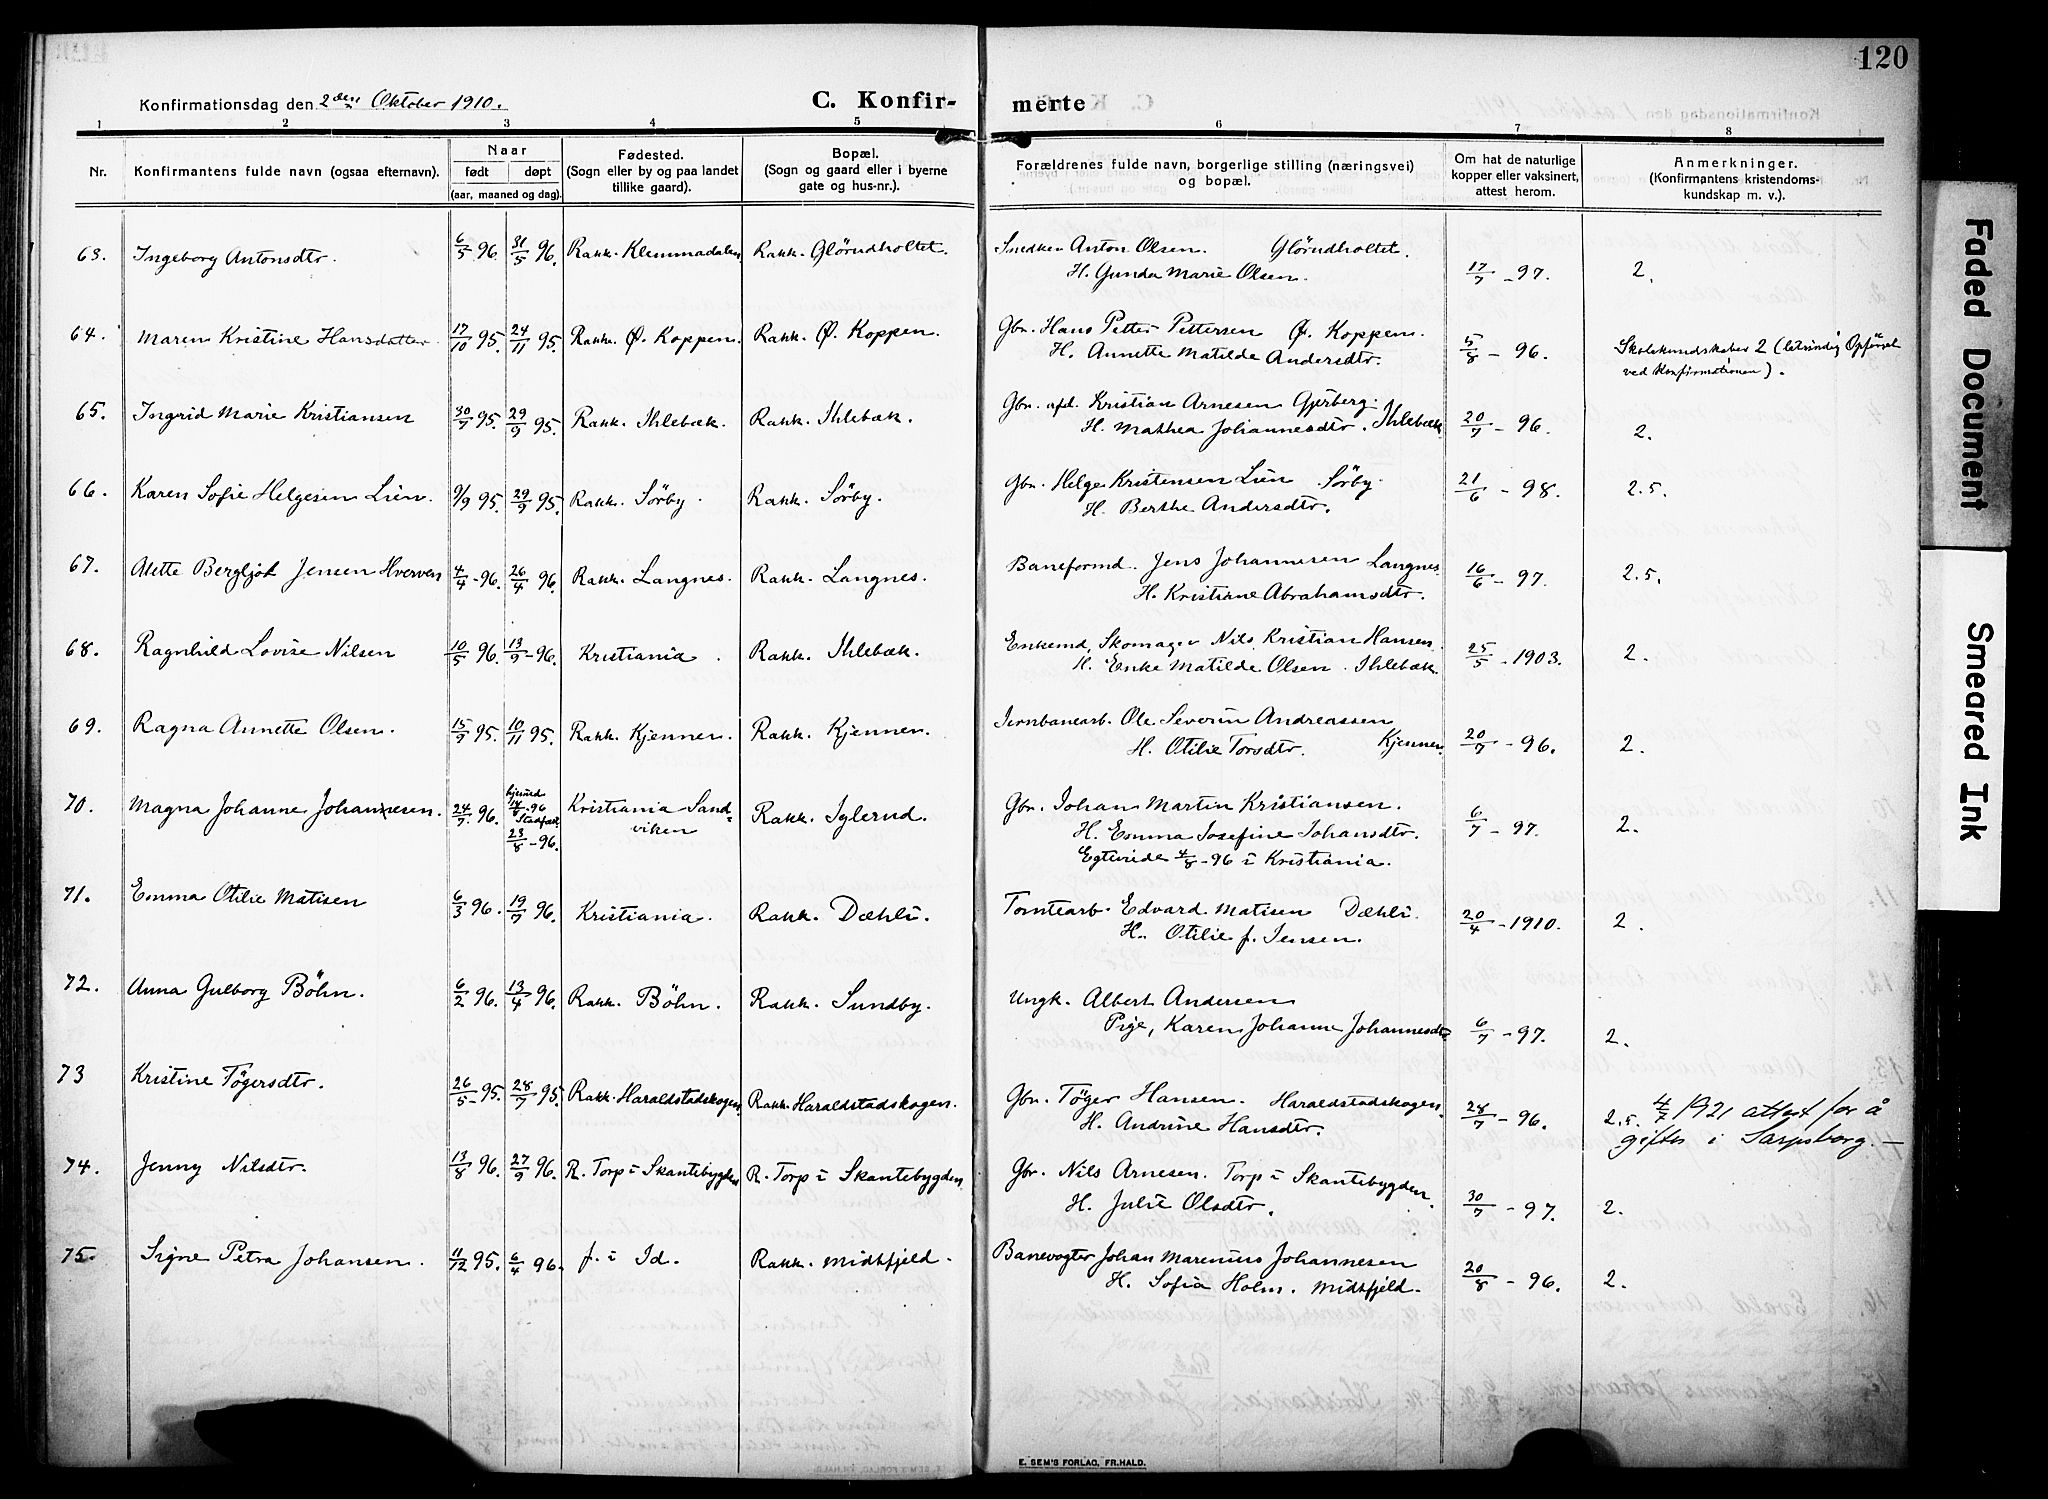 120
Konfirmationsdag den 2den Oktober 1910. C. Konfir- merte
1 2 3 4 5 6 7 8
Nr. Konfirmantens fulde navn (ogsaa efternavn). Naar født døpt (aar, maaned og dag). Fødested. (Sogn eller by og paa landet tillike gaard). Bopæl. (Sogn og gaard eller i byerne gate og hus-nr.). Forældrenes fulde navn, borgerlige stilling (næringsvei) og bopæl. Om hat de naturlige kopper eller vaksinert, attest herom. Anmerkninger. (Konfirmantens kristendoms-kundskap m. v.).
63. Ingeborg Antonsdtr. 6/5 96. 31/5 96. Rakk. Klemmadalen Rakk. Glörudholtet. Snedker Anton Olsen. Glörudholtet.
H. Gunda Marie Olsen. 17/7 - 97. 2.
64. Maren Kristine Hansdatter 17/10 95. 24/11 95. Rakk. Ø. Koppen. Rakk. Ø. Koppen. Gbr. Hans Petter Pettersen Ø. Koppen.
H. Annette Matilde Andersdtr. 5/8 - 96. Skolekundskaber 2 (letsindig Opförsel
ved Konfirmationen).
65. Ingrid Marie Kristiansen 30/7 95. 29/9 95. Rakk. Ihlebæk. Rakk. Ihlebæk. Gbr. afd. Kristian Arnesen Gjerberg.
H. Mathea Johannesdtr. Ihlebæk 20/7 - 96. 2.
66. Karen Sofie Helgesen Lien. 9/9 95. 29/9 95. Rakk. Sörby. Rakk. Sörby. Gbr. Helge Kristensen Lien Sörby.
H. Berthe Andersdtr. 21/6 - 98. 2.5.
67. Alette Bergljot Jensen Hverven 4/4 - 96. 26/4 96. Rakk. Langnes. Rakk. Langnes. Baneformd. Jens Johannesen Langnes.
H. Kristiane Abrahamsdtr. 16/6 - 97. 2.5.
68. Ragnhild Lovise Nilsen 10/5 96. 13/9 - 96. Kristiania. Rakk. Ihlebæk. Enkemd. Skomager Nils Kristian Hansen.
H. Enke Matilde Olsen. Ihlebæk. 25/5 - 1903. 2.
69. Ragna Annette Olsen. 15/9 95. 10/11 95. Rakk. Kjennen. Rakk. Kjennen. Jernbanearb. Ole Severin Andreassen
H. Otilie Torsdtr. Kjennen. 20/7 - 96. 2.
70. Magna Johanne Johannesen. 24/7. 96. hjemmed 14/8 - 96 Stadfæst. 23/8 - 96. Kristiania Sand-
viken Rakk. Sylerud. Gbr. Johan Martin Kristiansen.
H. Emma Josefine Johansdtr.
Egteviede 4/8 - 96 i Kristiania. 6/7 - 97. 2.
71. Emma Otilie Matisen 6/3 96. 19/7 96. Kristiania. Rakk. Dæhli. Tomtearb. Edvard Matisen Dæhli.
H. Otilie f. Jensen. 20/4 - 1910. 2.
72. Anna Gulborg Böhn. 6/2 96. 13/4 96. Rakk. Böhn. Rakk. Sundby. Ungk. Albert Andersen
Pige, Karen Johanne Johannesdtr 6/7 - 97. 2.
73 Kristine Tögersdtr. 26/5 - 95. 28/7 95. Rakk. Haraldstadskogen Rakk. Haraldstadskogen. Gbr. Töger Hansen. Haraldstadskogen.
H. Andrine Hansdtr. 28/7 - 96. 2.5. 4/7 1921 attest for å
giftes i Sarpsborg. -
74. Jenny Nilsdtr. 13/8 96. 27/9 96. R. Torp i Skantebygden R. Torp i Skantebygden. Gbr. Nils Arnesen. Torp i Skantebygden.
H. Julie Olsdtr. 30/7 - 97. 2.
75. Signe Petra Johansen. 11/12 95. 6/4 96. f. i Id. Rakk. Midtfjeld. Banevogter Johan Marenius Johannesen
H. Sofia Holm. Midtfjeld. 20/8 - 96. 2.
E. SEM'S FORLAG, FR.HALD.
Faded Document
Smeared Ink